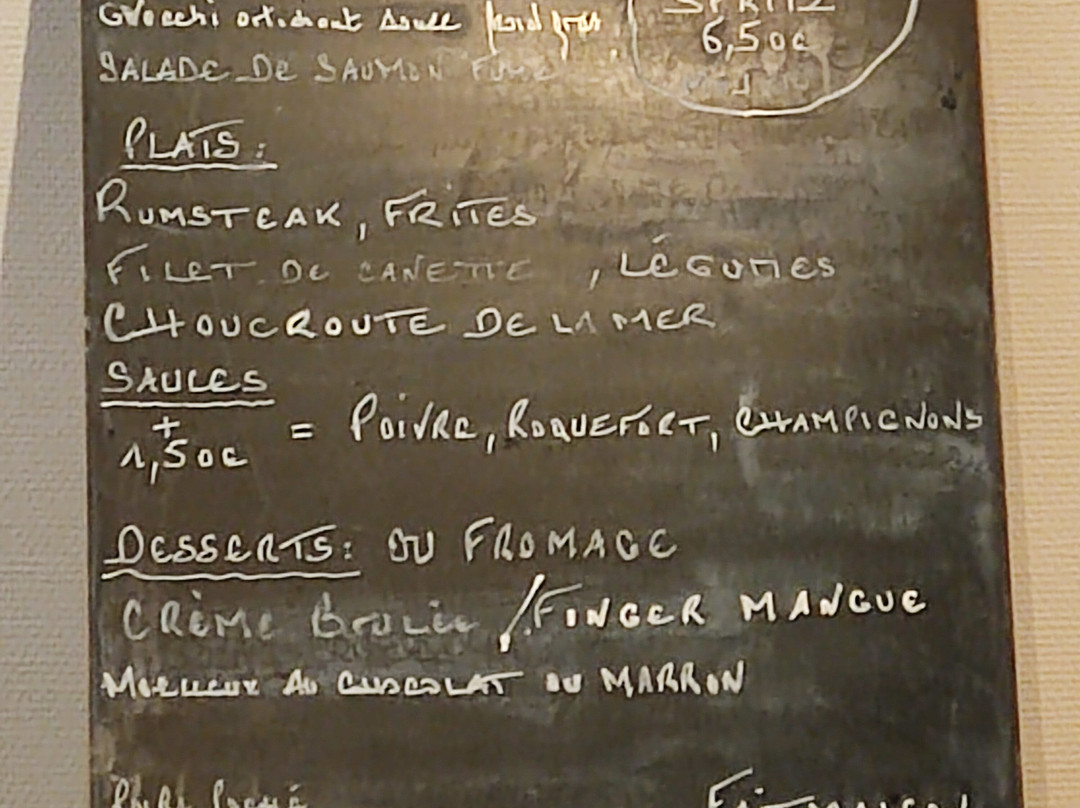 Gnocchi artichaut sauce foie gras
SPRITZ
6,50€
SALADE DE SAUMON FUMÉ
PLATS :
RUMSTEAK, FRITES
FILET DE CANETTE , LÉGUMES
CHOUCROUTE DE LA MER
SAUCES
+
1,50€ = POIVRE, ROQUEFORT, CHAMPIGNONS
DESSERTS : OU FROMAGE
CRÈME BRULÉE / FINGER MANGUE
MOELLEUX AU CHOCOLAT OU MARRON